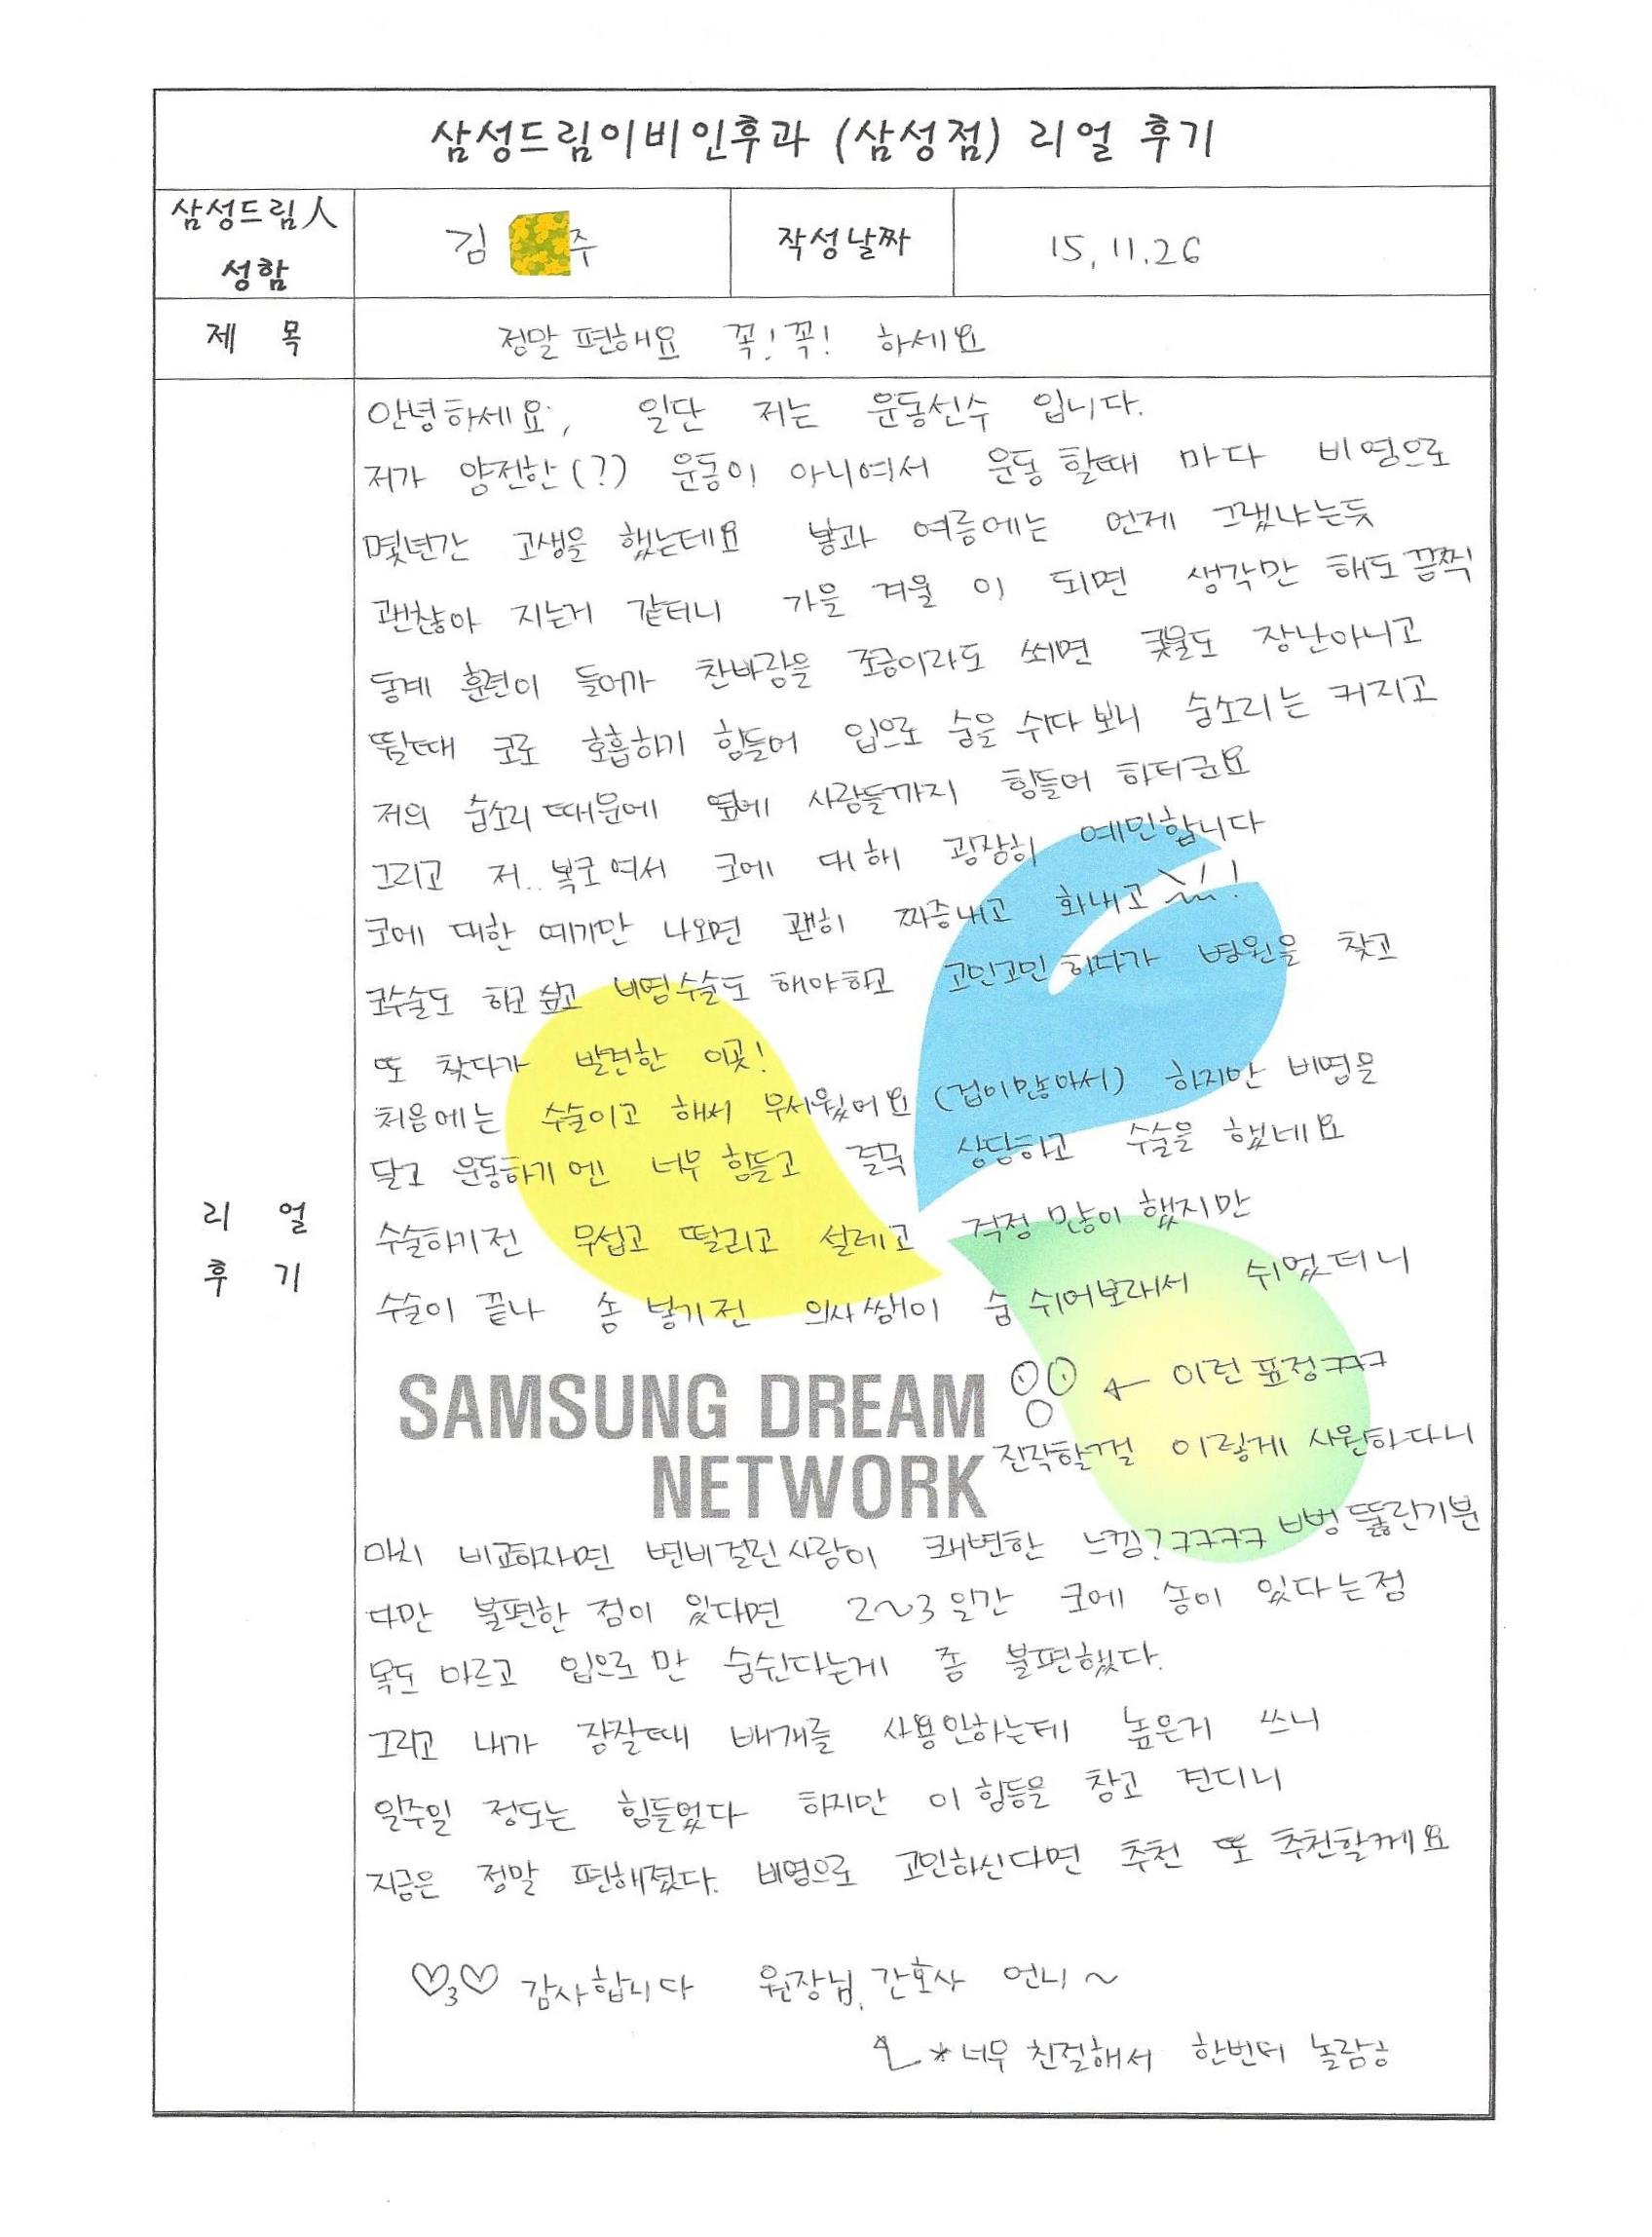 삼성드림이비인후과 (삼성점) 리얼 후기
삼성드림人
성함
김 주
작성날짜
15. 11. 26
제 목
정말 편해요 꼭! 꼭! 하세요
리 얼
후 기
안녕하세요, 일단 저는 운동선수 입니다.
저가 얌전한(?) 운동이 아니여서 운동 할때 마다 비염으로
몇년간 고생을 했는데요 봄과 여름에는 언제 그랬냐는듯
괜찮아 지는거 같터니 가을 겨울 이 되면 생각만 해도 끔찍
동계 훈련이 들어가 찬바람을 조금이라도 쐐면 콧물도 장난아니고
뛸때 코로 호흡하기 힘들어 입으로 숨을 쉬다 보니 숨소리는 커지고
저의 숨소리 때문에 옆에 사람들까지 힘들어 하터군요
그리고 저.. 복코여서 코에 대해 굉장히 예민합니다
코에 대한 얘기만 나오면 괜히 짜증내고 화내고 !
코수술도 하고 싶고 비염수술도 해야하고 고민고민 하다가 병원을 찾고
또 찾다가 발견한 이곳!
처음에는 수술이고 해서 무서웠어요 (겁이많아서) 하지만 비염을
달고 운동하기엔 너무 힘들고 결국 상담하고 수술을 했네요
수술하기전 무섭고 떨리고 설레고 걱정 많이 했지만
수술이 끝나 솜 넣기전 의사쌤이 숨 쉬어보래서 쉬었더니
← 이런 표정ㅋㅋㅋ
SAMSUNG DREAM
NETWORK
진작할껄 이렇게 시원하다니
마치 비교하자면 변비걸린사람이 쾌변한 느낌?ㅋㅋㅋㅋ 뻥 뚫린기분
다만 불편한 점이 있다면 2~3일간 코에 솜이 있다는점
목도 마르고 입으로만 숨쉰다는게 좀 불편했다.
그리고 내가 잠잘때 배개를 사용안하는데 높은거 쓰니
일주일 정도는 힘들었다 하지만 이 힘듬을 참고 견디니
지금은 정말 편해졌다. 비염으로 고민하신다면 추천 또 추천할께요
♡3♡ 감사합니다 원장님, 간호사 언니~
*너무 친절해서 한번더 놀람ㅎ